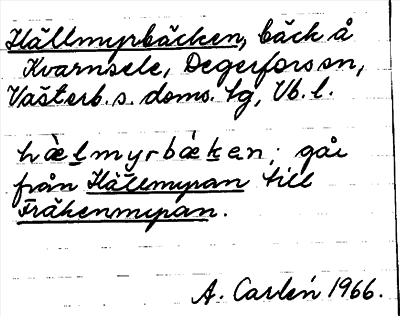 Hällmyrbäcken, bäck å
Kvarnsele, Degerfors sn,
Västerb. s. doms. tg, Vb. l.
hæ̀lmyrbæ̀ken; går
från Hällmyran till
Fräkenmyran.
A. Carlén 1966.